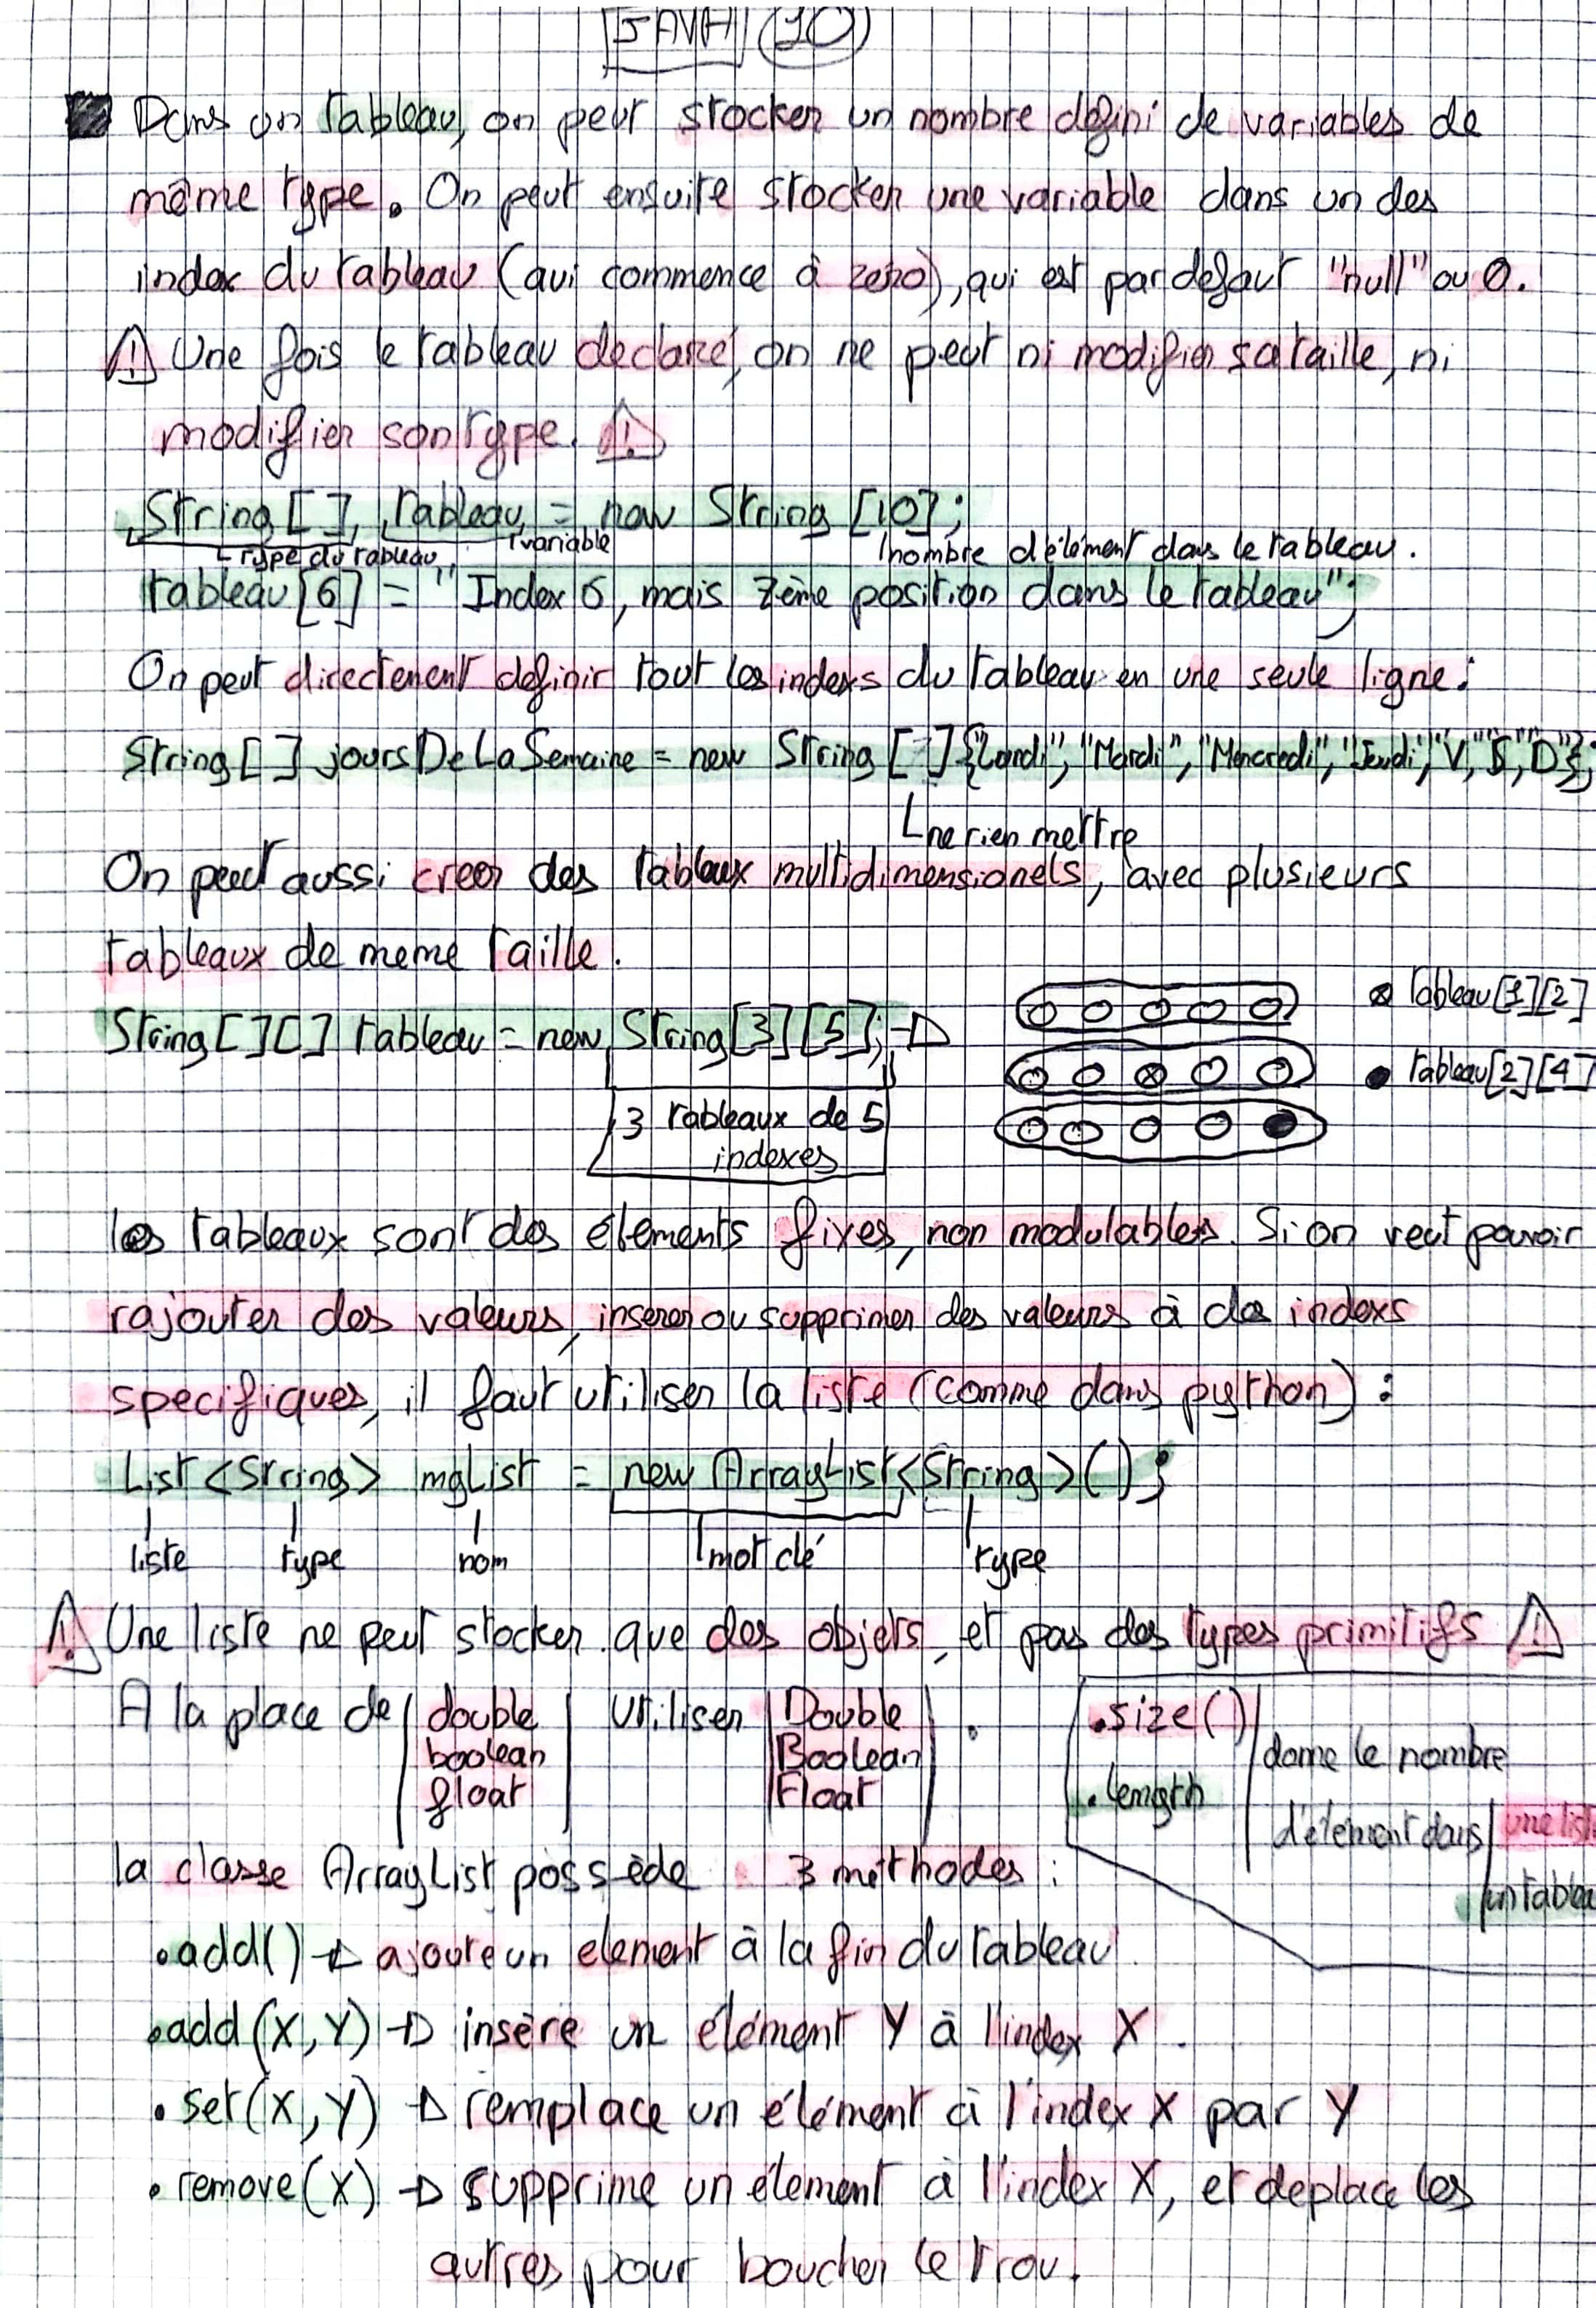 JAVA (10)
Dans un tableau, on peut stocker un nombre defini de variables de
même type. On peut ensuite stocker une variable dans un des
index du tableau (qui commence à zéro), qui est par defaut "null" ou 0.
⚠ Une fois le tableau declaré, on ne peut ni modifier sa taille, ni
modifier son type. ⚠
String [ ] tableau = new String [10];
type du tableau variable nombre d'élément dans le tableau.
tableau [6] = "Index 6, mais 7ème position dans le tableau";
On peut directement definir tout les indexs du tableau en une seule ligne :
String [ ] joursDeLaSemaine = new String [ ] {"Lundi", "Mardi", "Mercredi", "Jeudi", "V", "S", "D"};
ne rien mettre
On peut aussi creer des tableux multidimensionels, avec plusieurs
tableaux de meme taille.
String [ ][ ] tableau = new String [3][5]; →
3 tableaux de 5
indexes
⊗ tableau[1][2]
● tableau[2][4]
les tableaux sont des élements fixes, non modulables. Si on veut pouvoir
rajouter des valeurs, inserer ou supprimer des valeurs à des indexs
specifiques, il faut utiliser la liste (comme dans python) :
List <String> myList = new ArrayList <String> ( ) ;
liste type nom mot clé type
⚠ Une liste ne peut stocker que des objets, et pas des types primitifs ⚠
A la place de double utiliser Double .
boolean Boolean
float Float
.size()
.length
donne le nombre
d'élément dans une liste
un tablea
la classe ArrayList possède 3 méthodes :
• add() → ajoute un element à la fin du tableau.
• add (X, Y) → insère un élément Y à l'index X .
• set (X, Y) → remplace un élément à l'index X par Y
• remove (X) → supprime un élement à l'index X, et deplace les
autres pour boucher le trou.